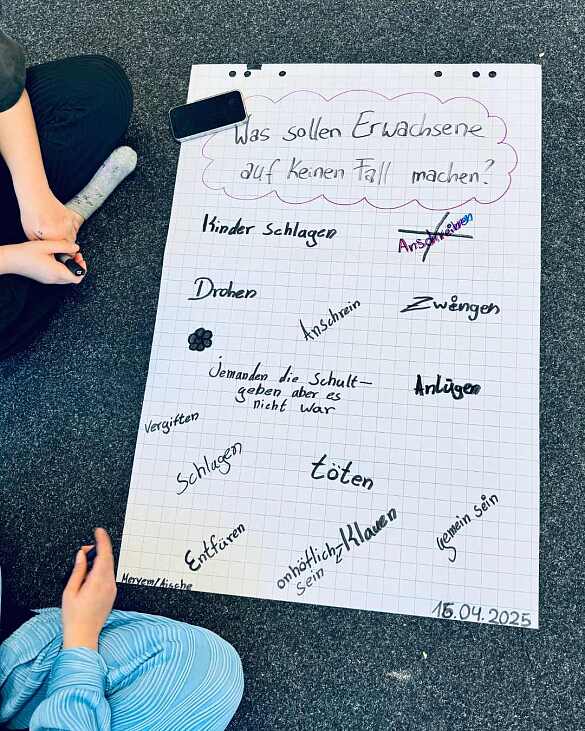 Was sollen Erwachsene
auf keinen Fall machen?
Kinder schlagen
Anschreinen
Drohen
Anschrein
Zwången
jemanden die Schult-
geben aber es
nicht war
Anlügen
Vergiften
Schlagen
töten
Entfüren
onhöftlich
sein
Klauen
gemein sein
Meryem/Aische
16.04.2025